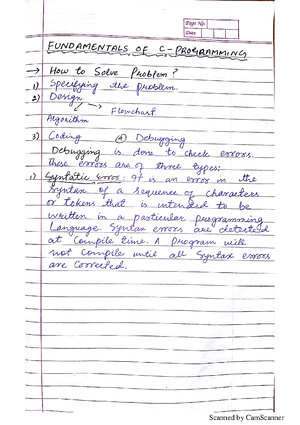 Page No.
Date
FUNDAMENTALS OF C-PROGRAMMING
→ How to Solve Problem?
1) Specifying the problem.
2) Design
Algorithm Flowchart
3) Coding 4) Debugging
Debugging is done to check errors.
These errors are of three types:
1) Syntatic Error: It is an error in the
Syntax of a sequence of characters
or tokens that is intended to be
written in a particular programming
Language. Syntax errors are detected
at Compile time. A program will
not compile until all Syntax errors
are Corrected.
Scanned by CamScanner